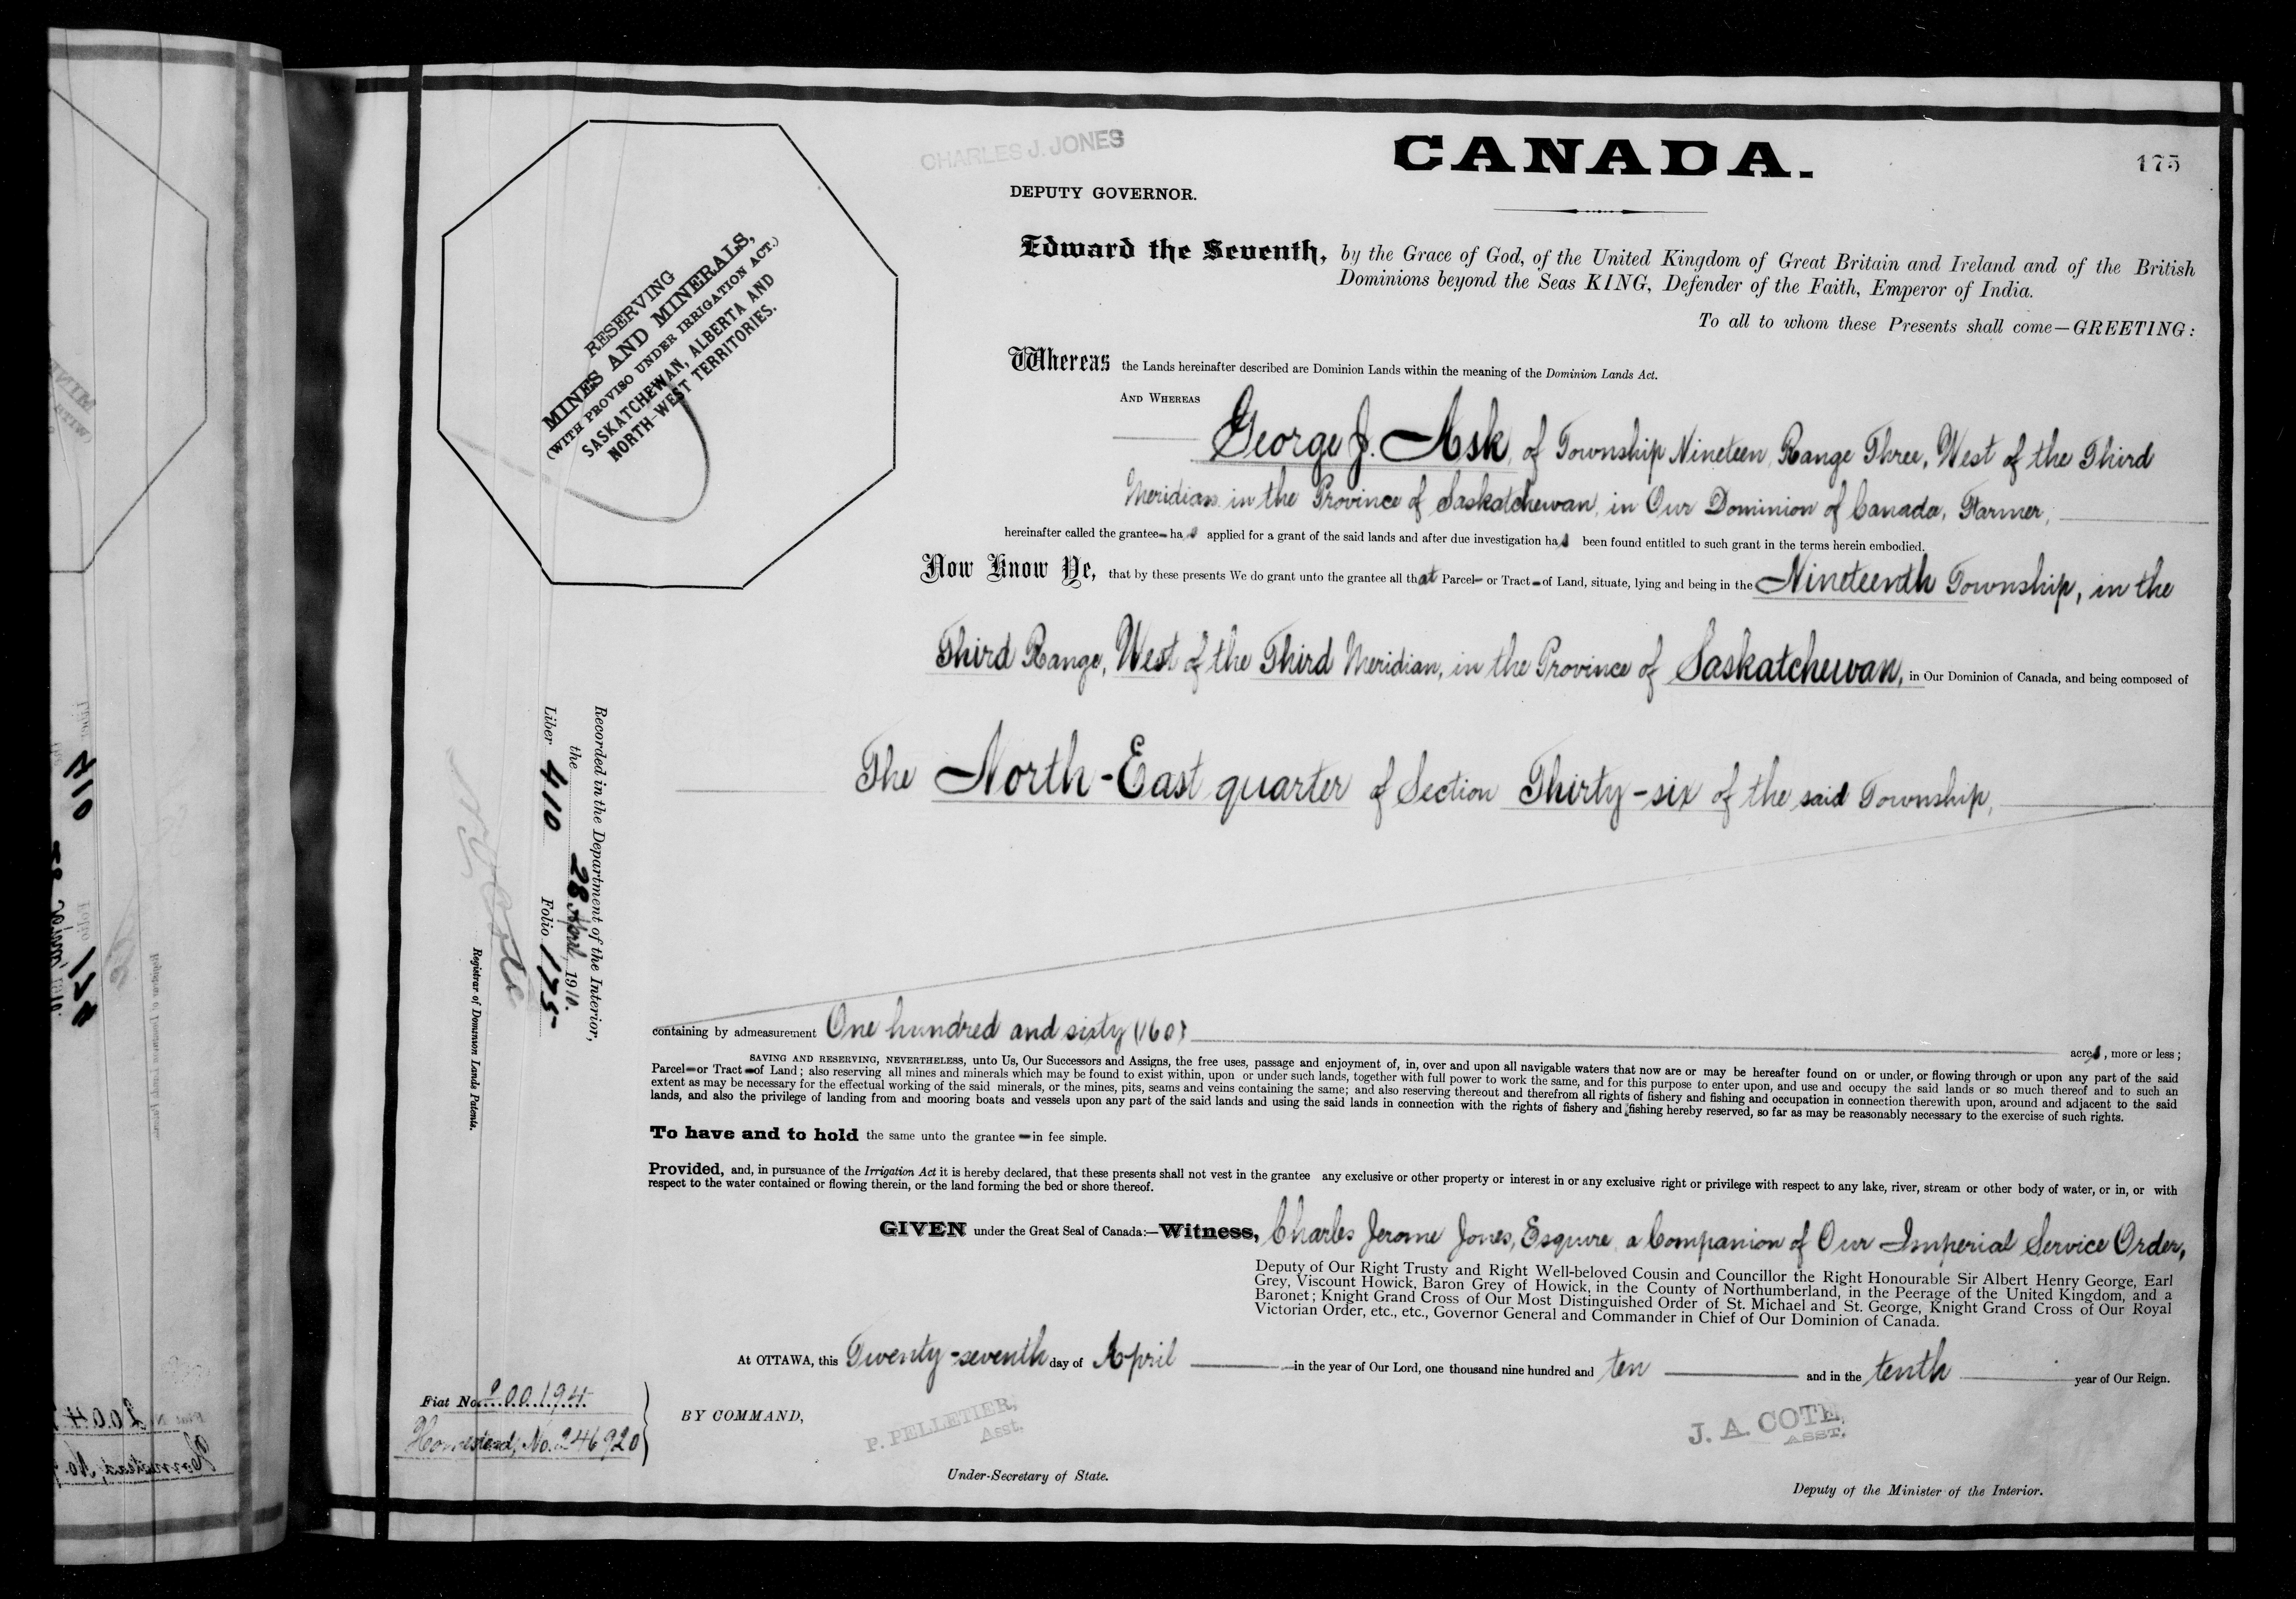 CHARLES J. JONES
DEPUTY GOVERNOR.
CANADA.
175
RESERVING
MINES AND MINERALS,
(WITH PROVISO UNDER IRRIGATION ACT.)
SASKATCHEWAN, ALBERTA AND
NORTH-WEST TERRITORIES.
Edward the Seventh, by the Grace of God, of the United Kingdom of Great Britain and Ireland and of the British
Dominions beyond the Seas KING, Defender of the Faith, Emperor of India.
To all to whom these Presents shall come—GREETING:
Whereas the Lands hereinafter described are Dominion Lands within the meaning of the Dominion Lands Act.
AND WHEREAS
George J. Ask, of Township Nineteen, Range Three, West of the Third
Meridian in the Province of Saskatchewan, in Our Dominion of Canada, Farmer,
hereinafter called the grantee has applied for a grant of the said lands and after due investigation has been found entitled to such grant in the terms herein embodied.
Now Know Ye, that by these presents We do grant unto the grantee all that Parcel or Tract of Land, situate, lying and being in the Nineteenth Township, in the
Third Range, West of the Third Meridian, in the Province of Saskatchewan, in Our Dominion of Canada, and being composed of
The North-East quarter of Section Thirty-six of the said Township,
containing by admeasurement One hundred and sixty (160) acres, more or less;
SAVING AND RESERVING, NEVERTHELESS, unto Us, Our Successors and Assigns, the free uses, passage and enjoyment of, in, over and upon all navigable waters that now are or may be hereafter found on or under, or flowing through or upon any part of the said
Parcel or Tract of Land; also reserving all mines and minerals which may be found to exist within, upon or under such lands, together with full power to work the same, and for this purpose to enter upon, and use and occupy the said lands or so much thereof and to such an
extent as may be necessary for the effectual working of the said minerals, or the mines, pits, seams and veins containing the same; and also reserving thereout and therefrom all rights of fishery and fishing and occupation in connection therewith upon, around and adjacent to the said
lands, and also the privilege of landing from and mooring boats and vessels upon any part of the said lands and using the said lands in connection with the rights of fishery and fishing hereby reserved, so far as may be reasonably necessary to the exercise of such rights.
To have and to hold the same unto the grantee in fee simple.
Provided, and, in pursuance of the Irrigation Act it is hereby declared, that these presents shall not vest in the grantee any exclusive or other property or interest in or any exclusive right or privilege with respect to any lake, river, stream or other body of water, or in, or with
respect to the water contained or flowing therein, or the land forming the bed or shore thereof.
GIVEN under the Great Seal of Canada:—Witness, Charles Jerome Jones, Esquire, a Companion of Our Imperial Service Order,
Deputy of Our Right Trusty and Right Well-beloved Cousin and Councillor the Right Honourable Sir Albert Henry George, Earl
Grey, Viscount Howick, Baron Grey of Howick, in the County of Northumberland, in the Peerage of the United Kingdom, and a
Baronet; Knight Grand Cross of Our Most Distinguished Order of St. Michael and St. George, Knight Grand Cross of Our Royal
Victorian Order, etc., etc., Governor General and Commander in Chief of Our Dominion of Canada.
At OTTAWA, this Twenty-seventh day of April in the year of Our Lord, one thousand nine hundred and ten and in the tenth year of Our Reign.
BY COMMAND,
P. PELLETIER,
Asst.
Under-Secretary of State.
J. A. COTE,
ASST.
Deputy of the Minister of the Interior.
Fiat No. 200194
Homestead, No. 246920
Recorded in the Department of the Interior,
the 28 April, 1910.
Liber 410 Folio 175
N. O. Coté
Registrar of Dominion Lands Patents.